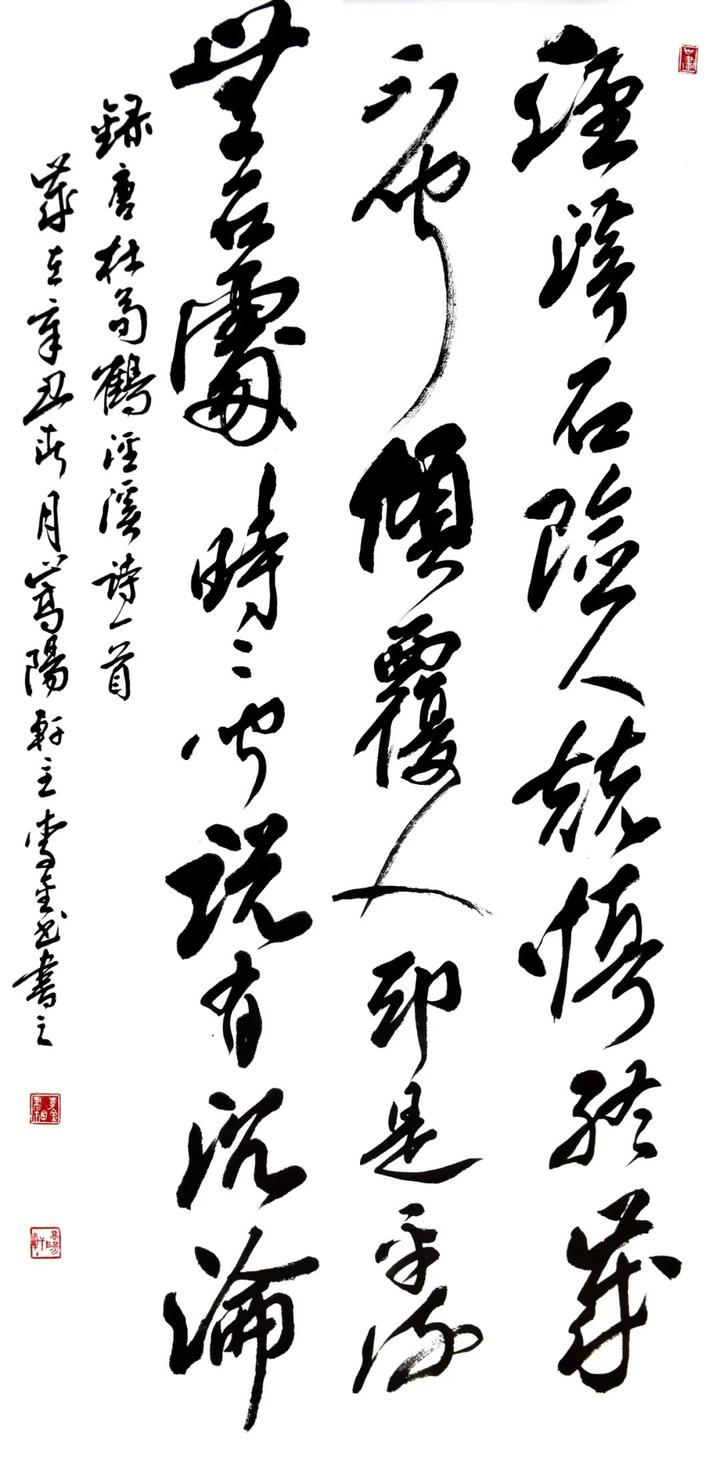 涇溪石險人兢慎終歲
不聞傾覆人却是平流
無石處時〻聞說有沉淪
錄唐杜荀鶴涇溪詩一首
歲在辛丑春月嵩陽軒主李金書之